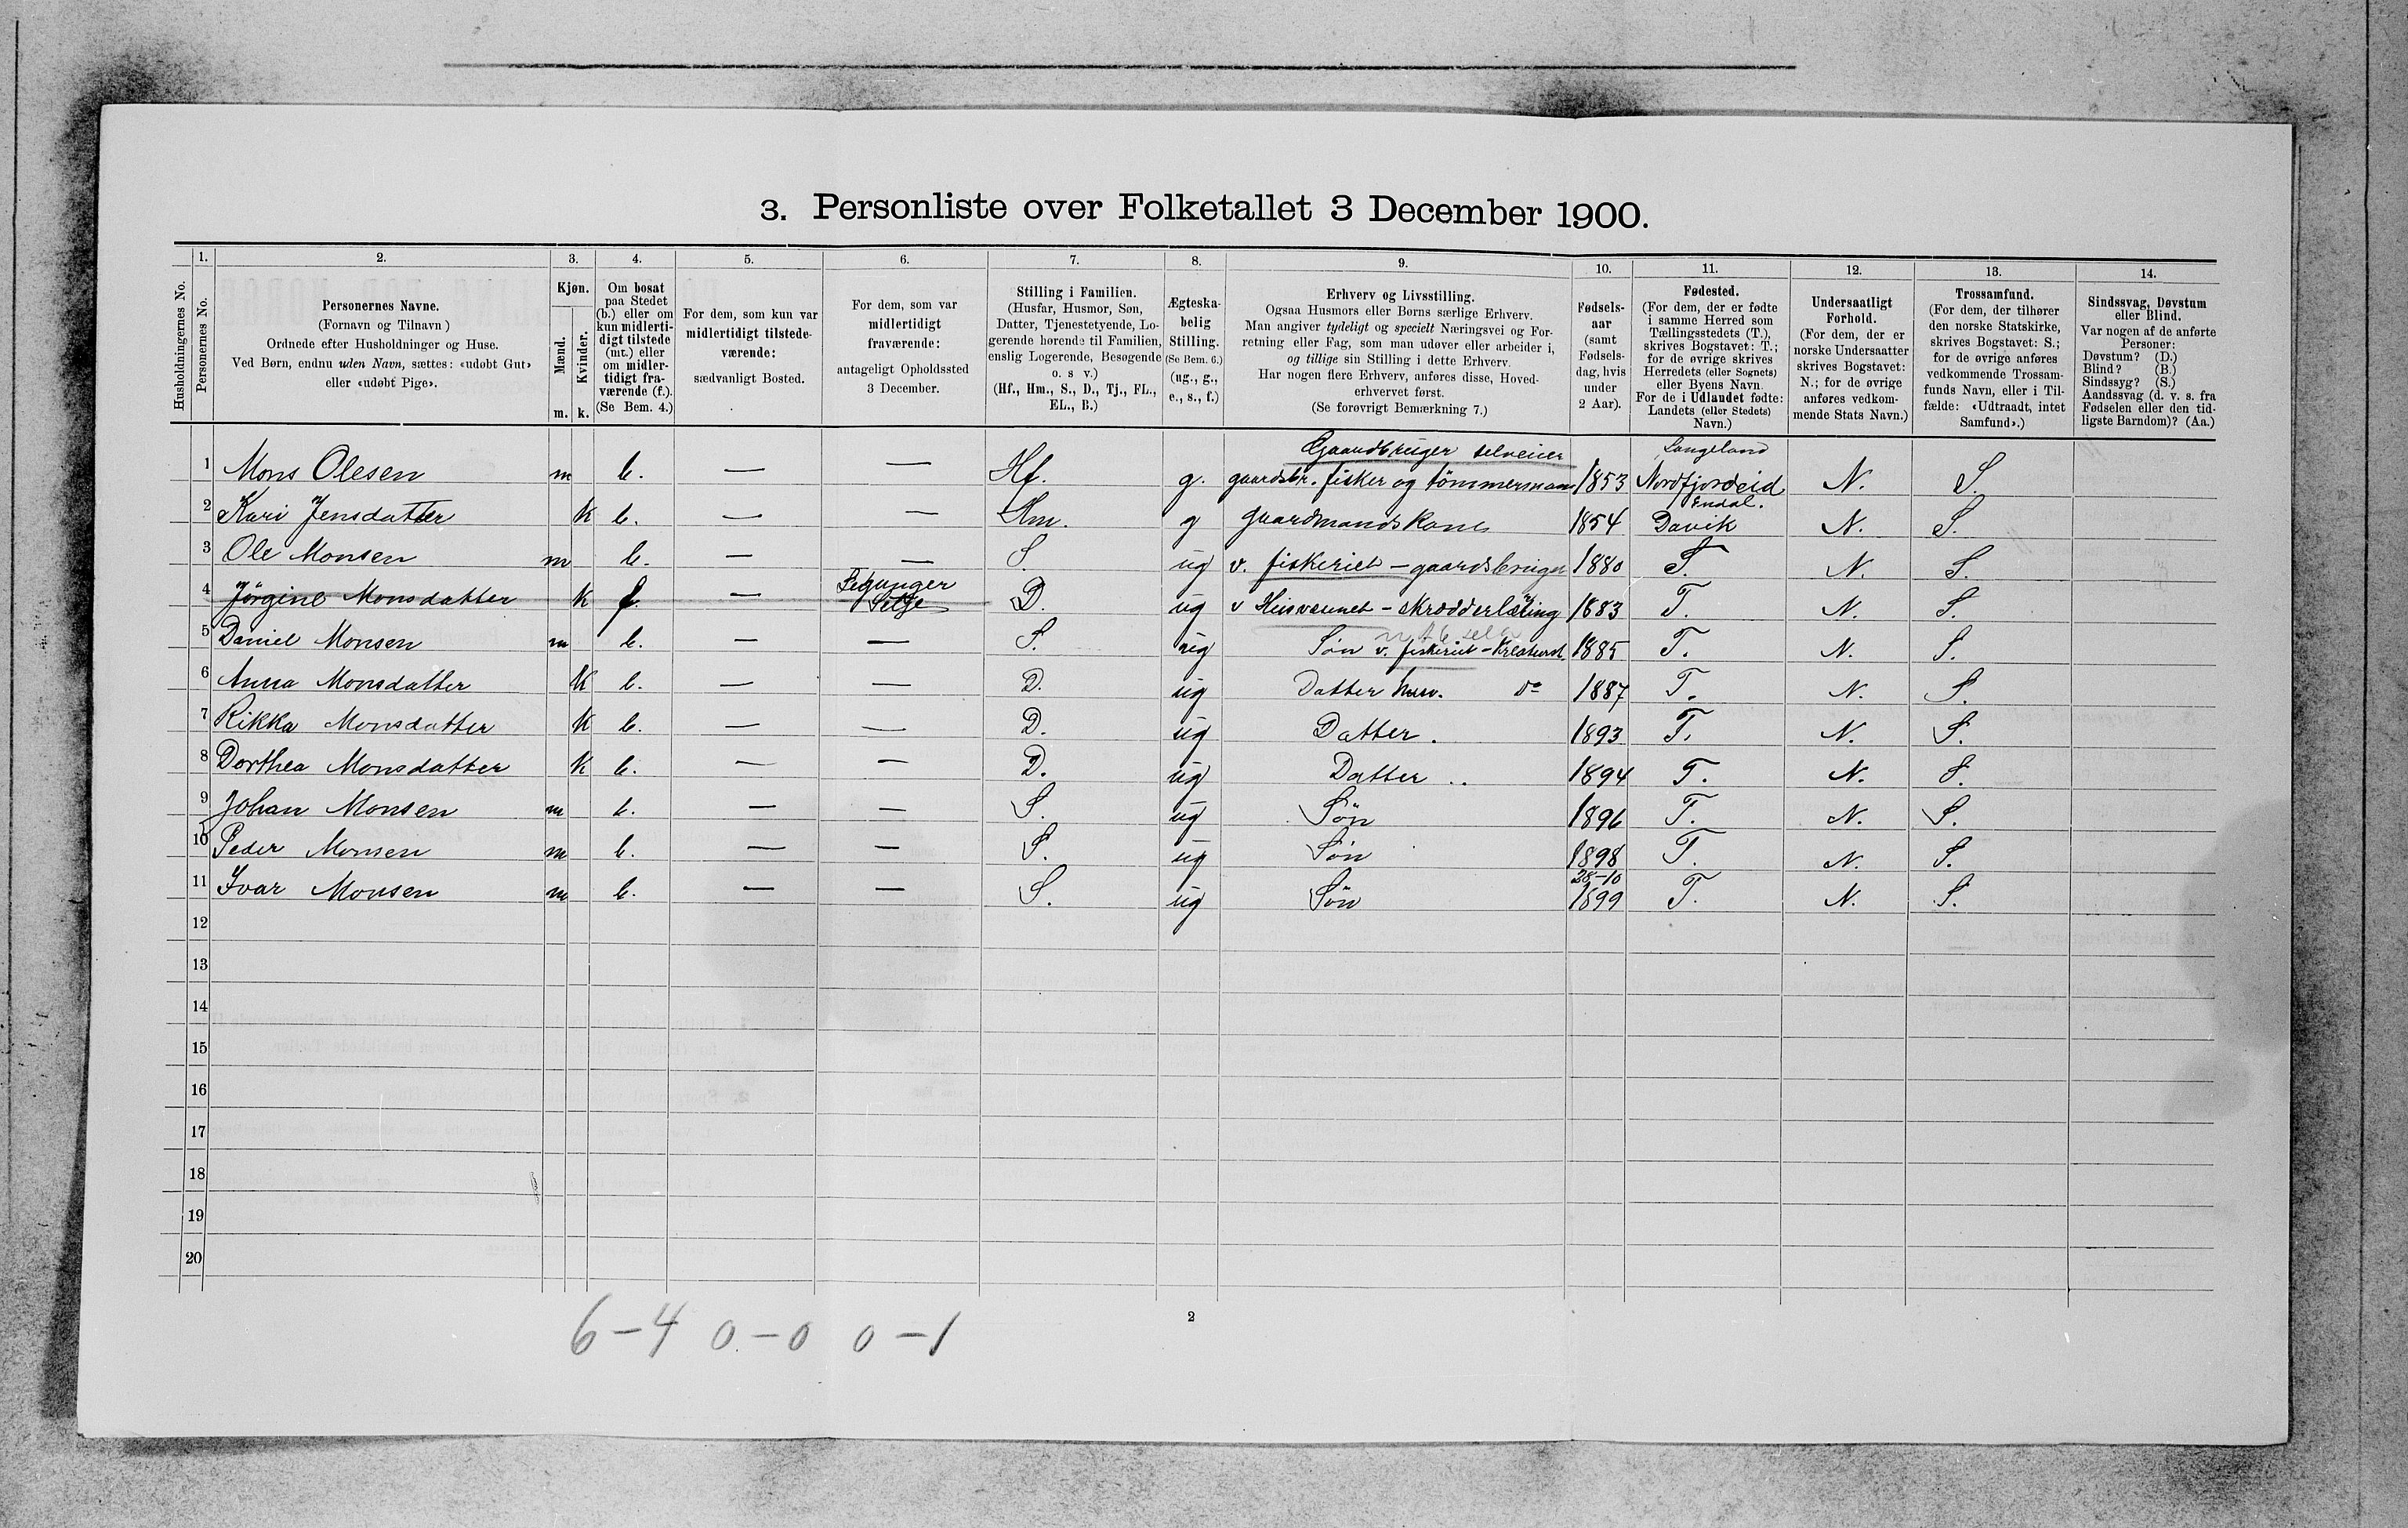 3. Personliste over Folketallet 3 December 1900.
Husholdningernes No.
1.
Personernes No.
2.
Personernes Navne.
(Fornavn og Tilnavn)
Ordnede efter Husholdninger og Huse.
Ved Børn, endnu uden Navn, sættes: «udøbt Gut»
eller «udøbt Pige».
3.
Kjøn.
Mænd.
Kvinder.
m. k.
4.
Om bosat
paa Stedet
(b.) eller om
kun midlerti-
digt tilstede
(mt.) eller
om midler-
tidigt fra-
værende (f.).
(Se Bem. 4.)
5.
For dem, som kun var
midlertidigt tilstede-
værende:
sædvanligt Bosted.
6.
For dem, som var
midlertidigt
fraværende:
antageligt Opholdssted
3 December.
7.
Stilling i Familien.
(Husfar, Husmor, Søn,
Datter, Tjenestetyende, Lo-
gerende hørende til Familien,
enslig Logerende, Besøgende
o. s v.)
(Hf., Hm., S., D., Tj., FL.,
EL., B.)
8.
Ægteska-
belig
Stilling.
(Se Bem. 6.)
(ug., g.,
e., s., f.)
9.
Erhverv og Livsstilling.
Ogsaa Husmors eller Børns særlige Erhverv.
Man angiver tydeligt og specielt Næringsvei og For-
retning eller Fag, som man udøver eller arbeider i,
og tillige sin Stilling i dette Erhverv.
Har nogen flere Erhverv, anføres disse, Hoved-
erhvervet først.
(Se forøvrigt Bemærkning 7.)
10.
Fødsels-
aar
(samt
Fødsels-
dag, hvis
under
2 Aar).
11.
Fødested.
(For dem, der er fødte
i samme Herred som
Tællingsstedets (T.),
skrives Bogstavet: T.;
for de øvrige skrives
Herredets (eller Sognets)
eller Byens Navn.
For de i Udlandet fødte:
Landets (eller Stedets)
Navn.)
12.
Undersaatligt
Forhold.
(For dem, der er
norske Undersaatter
skrives Bogstavet:
N.; for de øvrige
anføres vedkom-
mende Stats Navn.)
13.
Trossamfund.
(For dem, der tilhører
den norske Statskirke,
skrives Bogstavet: S.;
for de øvrige anføres
vedkommende Trossam-
funds Navn, eller i Til-
fælde: «Udtraadt, intet
Samfund».)
14.
Sindssvag, Døvstum
eller Blind.
Var nogen af de anførte
Personer:
Døvstum? (D.)
Blind? (B.)
Sindssyg? (S.)
Aandssvag (d. v. s. fra
Fødselen eller den tid-
ligste Barndom)? (Aa.)
Gaardbruger selveier Langeland
1 Mons Olesen m b. — — Hf. g. gaardbr. fisker og tömmermam 1853 Nordfjordeid N. S.
Endal.
2 Kari Jensdatter K b. — — Hm. g gaardmandskone 1854 Davik N. S.
3 Ole Monsen m b. — — S. ug v. fiskeriet – gaardsbruger 1880 T. N. S.
4 Jörgine Monsdatter K f. — Selje D. ug v Husvæsnet – skrædderlæring 1883 T. N. S.
5 Daniel Monsen m b. — — S. ug Sön v. fiskeriet – 1885 T. N. S.
6 Anna Monsdatter K b. — — D. ug Datter husv. do 1887 T. N. S.
7 Rikka Monsdatter K b. — — D. ug Datter. 1893 T. N. S.
8 Dorthea Monsdatter K b. — — D. ug Datter .. 1894 T. N. S.
9 Johan Monsen m b. — — S. ug Sön 1896 T. N. S.
10 Peder Monsen m b. — — S. ug Sön 1898 T. N. S.
28-10
11 Ivar Monsen m b. — — S. ug Sön 1899 T. N. S.
12
13
14
15
16
17
18
19
20
6–4 0–0 0–1
2